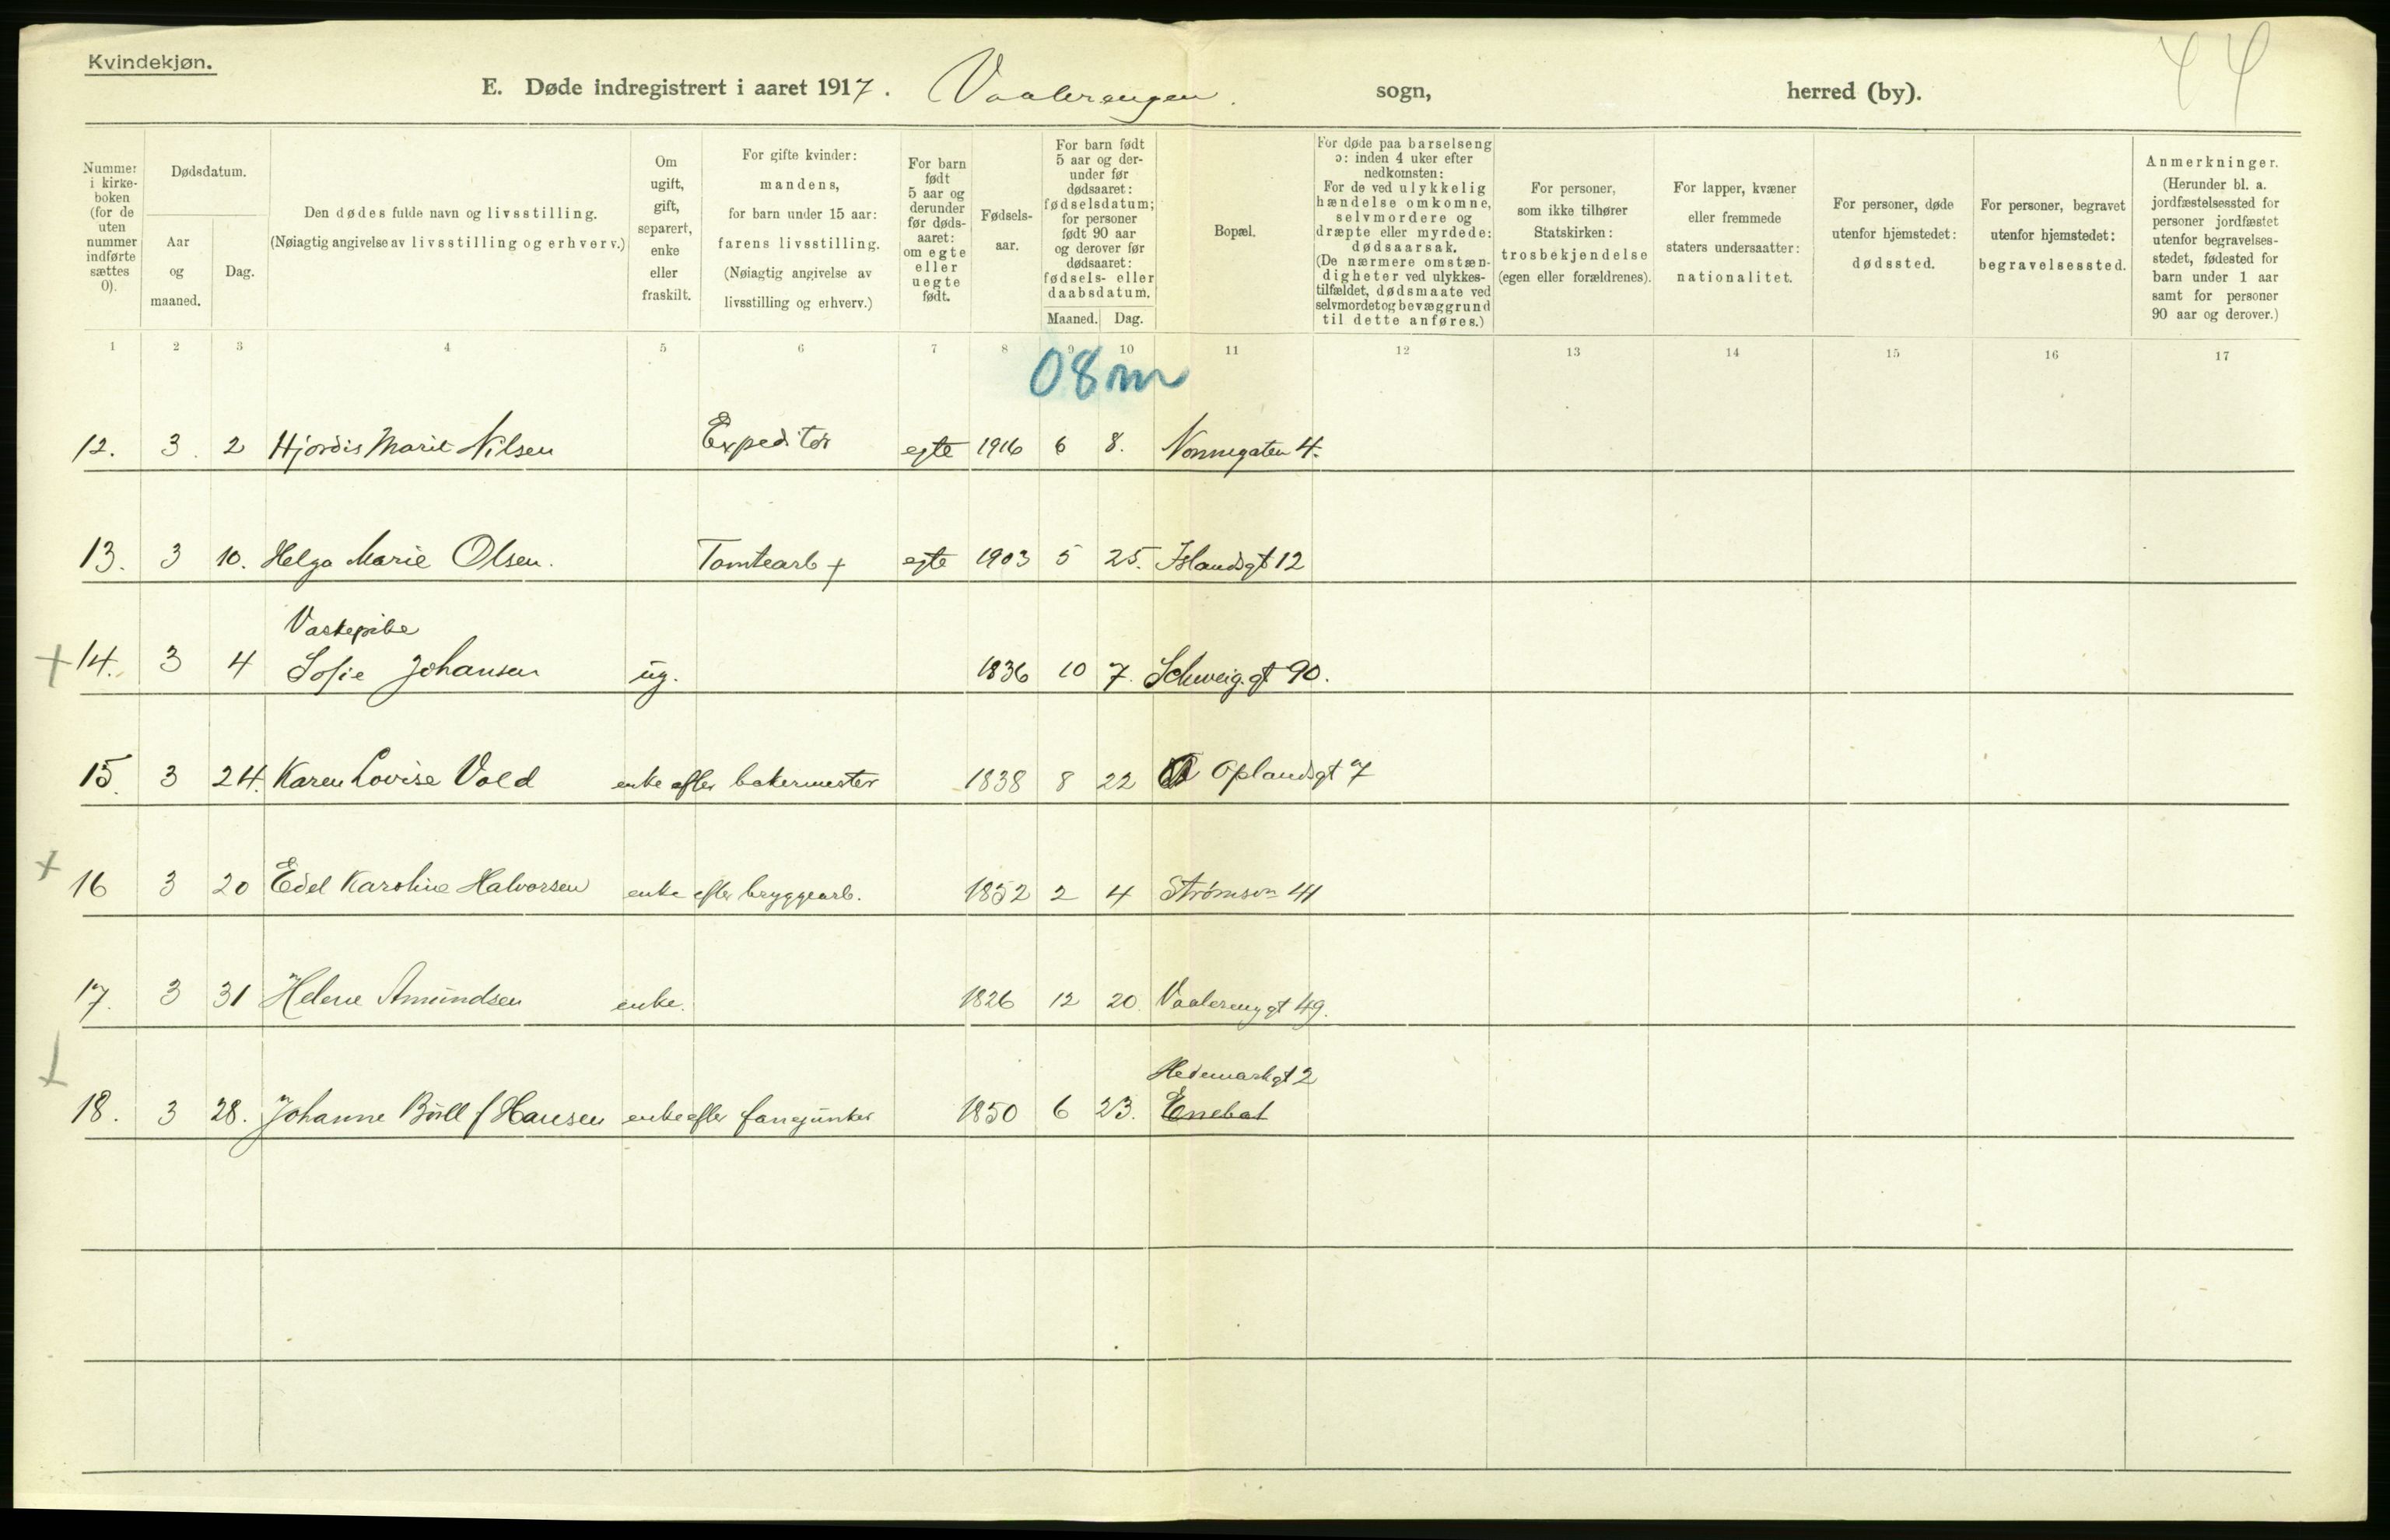 Kvindekjøn.
44
E. Døde indregistrert i aaret 1917. Vaalerengen. sogn, herred (by).
Nummer i kirkeboken (for de uten nummer indførte sættes 0).
Dødsdatum.
Aar og maaned.
Dag.
Den dødes fulde navn og livsstilling.
(Nøiagtig angivelse av livsstilling og erhverv.)
Om ugift, gift, separert, enke eller fraskilt.
For gifte kvinder: mandens, for barn under 15 aar: farens livsstilling.
(Nøiagtig angivelse av livsstilling og erhverv.)
For barn født 5 aar og derunder før dødsaaret: om egte eller uegte født.
Fødselsaar.
For barn født 5 aar og derunder før dødsaaret: fødselsdatum; for personer født 90 aar og derover før dødsaaret: fødsels- eller daabsdatum.
Maaned. Dag.
Bopæl.
For døde paa barselseng ɔ: inden 4 uker efter nedkomsten:
For de ved ulykkelig hændelse omkomne, selvmordere og dræpte eller myrdede: dødsaarsak.
(De nærmere omstændigheter ved ulykkestilfældet, dødsmaate ved selvmordet og bevæggrund til dette anføres.)
For personer, som ikke tilhører Statskirken: trosbekjendelse (egen eller forældrenes).
For lapper, kvæner eller fremmede staters undersaatter: nationalitet.
For personer, døde utenfor hjemstedet: dødssted.
For personer, begravet utenfor hjemstedet: begravelsessted.
Anmerkninger.
(Herunder bl. a. jordfæstelsessted for personer jordfæstet utenfor begravelsesstedet, fødested for barn under 1 aar samt for personer 90 aar og derover.)
1 2 3 4 5 6 7 8 9 10 11 12 13 14 15 16 17
08m
12. 3. 2 Hjordis Marit Nilsen Expeditør egte 1916 6 8. Nonnegaten 4.
13. 3 10. Helga Marie Olsen. Tomtearb + egte 1903 5 25. Islandsgt 12
Vaskepike
+ 14. 3 4 Sofie Johansen ug. 1836 10 7. Schweig.gt 90.
15. 3 24. Karen Lovise Vold enke efter bakermester 1838 8 22 Oplandsgt 7
+ 16 3 20 Edel Karoline Halvorsen enke efter bryggearb. 1852 2 4 Strømsvn 41
17. 3 31 Helene Amundsen enke. 1826 12 20. Vaalerenggt 49.
Hedemarkgt 2
18. 3 28. Johanne Büll f Hansen enke efter fanejunker 1850 6 23. Enebak